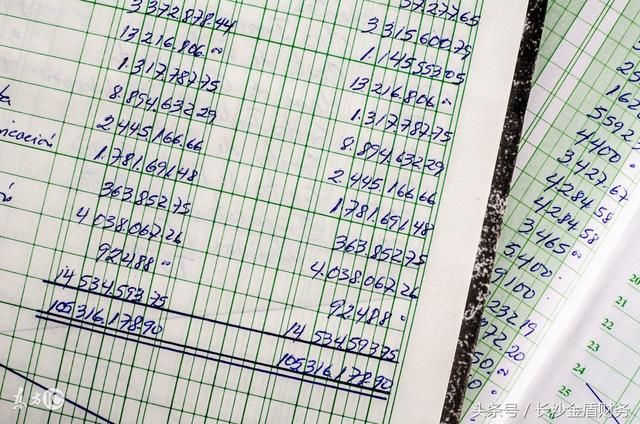 3.372.878.44
13.216.806.00
1.317.787.75
8.894.632.29
2.445.166.66
nicación
1.781.691.48
363.852.75
4.038.067.26
92.488.00
14.534.593.75
105.316.178.90
57.277.65
3.315.600.79
1.145.553.05
13.216.806.00
1.317.787.75
8.894.632.29
2.445.166.66
1.781.691.48
363.852.75
4.038.067.26
92.488.
14.534.593.75
105.316.178.90
4400.
3.427.67
4.284.58
4.284.58
3.465.00
5.400.
9100.
20
21
22
23
24
25
东方IC
头条号 / 长沙金盾财务